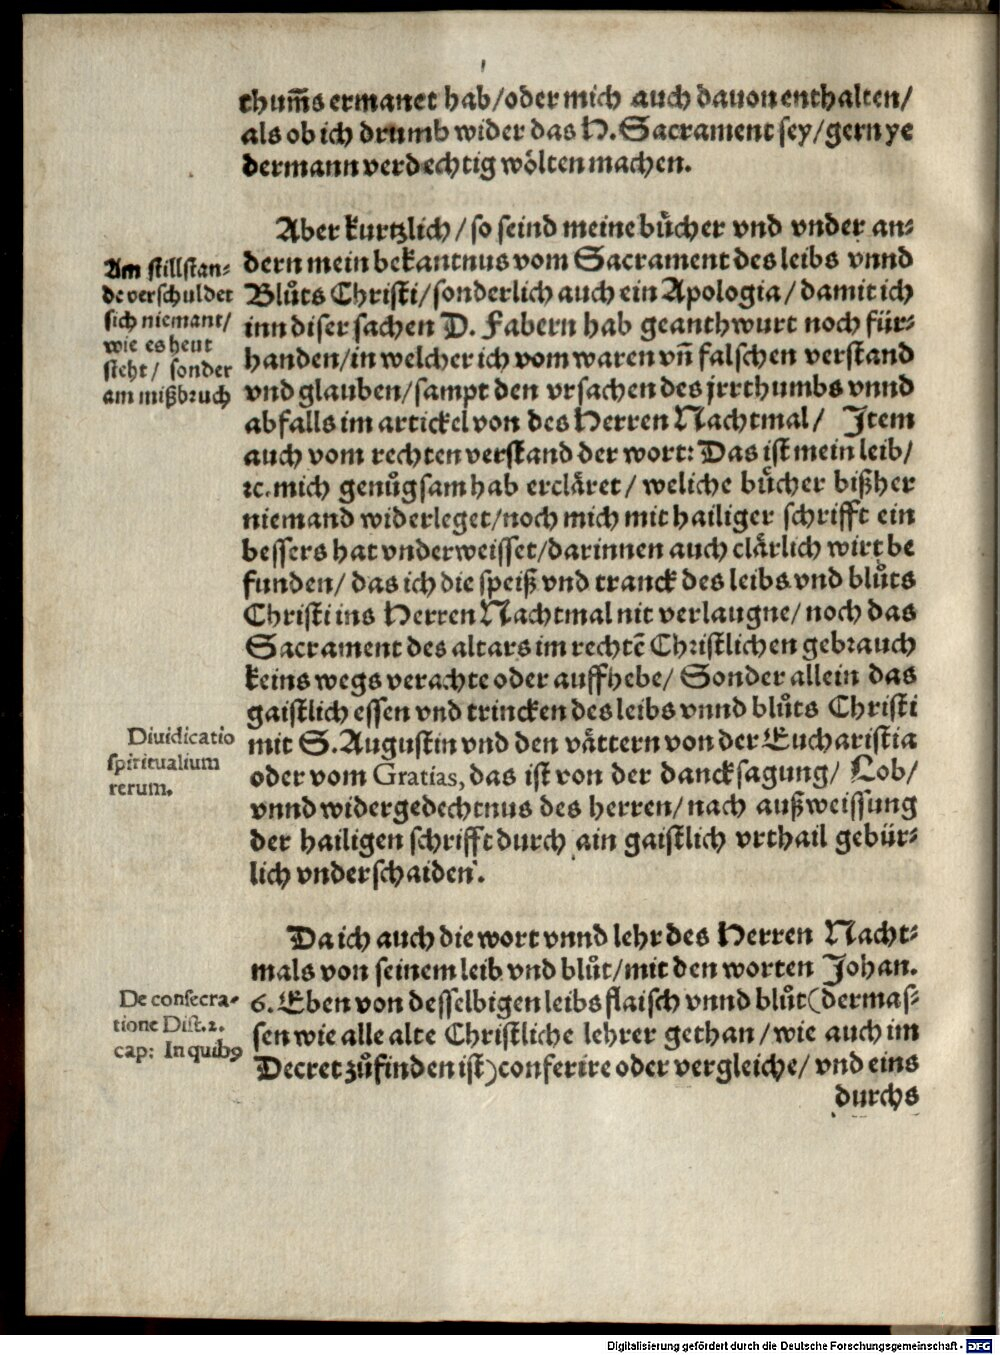 thum̃s ermanet hab/oder mich auch dauon enthalten/
als ob ich drumb wider das H. Sacrament sey/gern ye
dermann verdechtig wölten machen.
Aber kurtzlich/so seind meine bůcher vnd vnder an⸗
dern mein bekantnus vom Sacrament des leibs vnnd
Blůts Christi/sonderlich auch ein Apologia/damit ich
inn diser sachen D. Fabern hab geanthwurt noch für⸗
handen/in welcher ich vom waren vn̄ falschen verstand
vnd glauben/sampt den vrsachen des jrrthumbs vnnd
abfalls im artickel von des Herren Nachtmal/ Jtem
auch vom rechten verstand der wort: Das ist mein leib/
ꝛc. mich genůgsam hab ercläret/weliche bůcher bißher
niemand widerleget/noch mich mit hailiger schrifft ein
bessers hat vnderweisset/darinnen auch clärlich wirt be
funden/das ich die speiß vnd tranck des leibs vnd blůts
Christi ins Herren Nachtmal nit verlaugne/noch das
Sacrament des altars im rechtē Christlichen gebrauch
keins wegs verachte oder auffhebe/Sonder allein das
gaistlich essen vnd trincken des leibs vnnd blůts Christi
mit S. Augustin vnd den vättern von der Eucharistia
oder vom Gratias, das ist von der dancksagung/Lob/
vnnd widergedechtnus des herren/nach außweissung
der hailigen schrifft durch ain gaistlich vrthail gebür⸗
lich vnderschaiden.
Am stillstan⸗
de verschuldet
sich niemant/
wie es heut
steht/ sonder
am mißbruch
Diuidicatio
spiritualium
rerum.
Da ich auch die wort vnnd lehr des Herren Nacht⸗
mals von seinem leib vnd blůt/mit den worten Johan.
6. Eben von desselbigen leibs flaisch vnnd blůt (dermas⸗
sen wie alle alte Christliche lehrer gethan/wie auch im
Decret zůfinden ist) conferire oder vergleiche/vnd eins
De consecra⸗
tione Dist.2.
cap: In quibꝰ
durchs
Digitalisierung gefördert durch die Deutsche Forschungsgemeinschaft - DFG